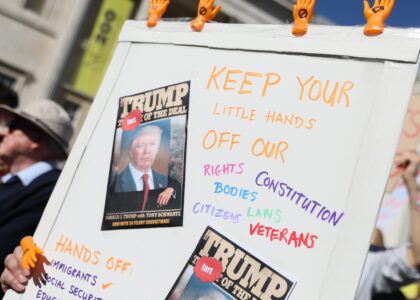 KEEP YOUR
LITTLE HANDS
OFF OUR
RIGHTS CONSTITUTION
BODIES
CITIZENS LAWS
VETERANS
TRUMP
OF THE DEAL
fart
DONALD J TRUMP with TONY SCHWARTZ
HANDS OFF:
IMMIGRANTS ✓
SOCIAL SECURITY
TRUMP
OF THE DEAL
fart